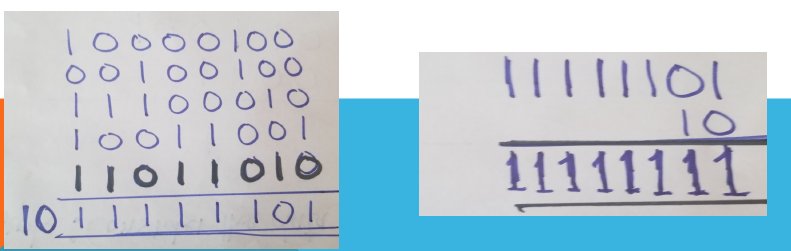 10000100
00100100
11100010
10011001
11011010
10 11111101
11111101
10
11111111